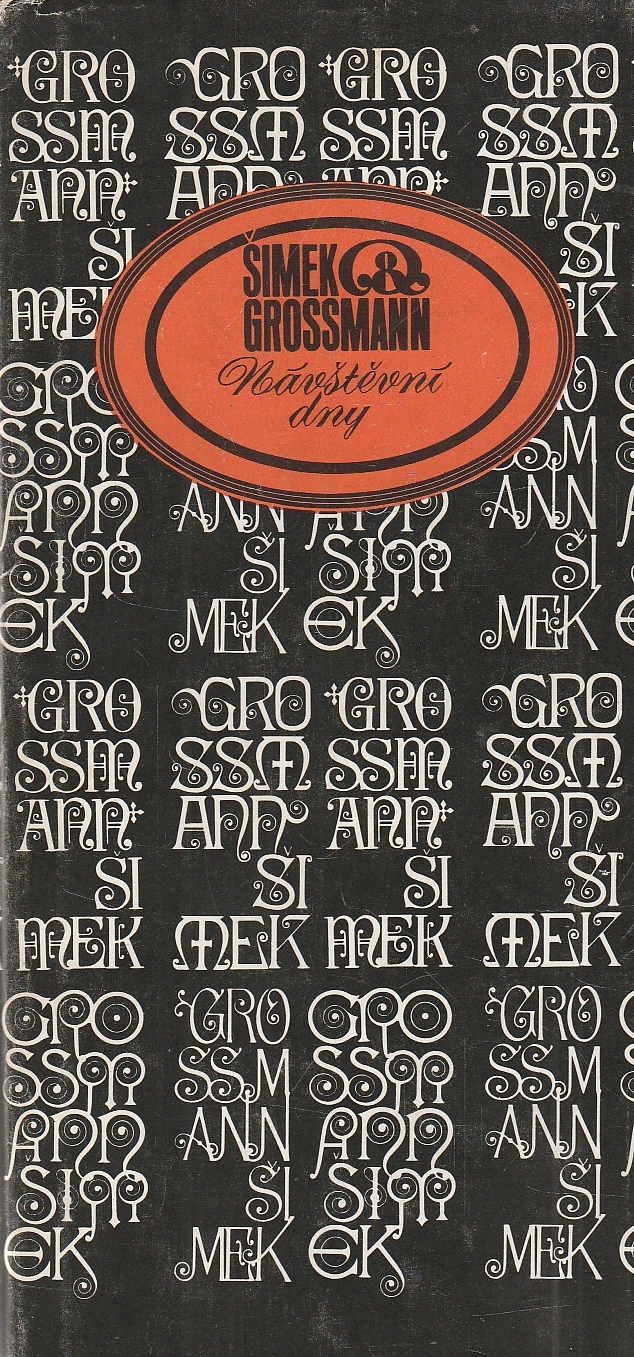 GRO GRO GRO GRO
SSM SSM SSM SSM
ANN ANN ANN ANN
ŠI ŠI
ŠIMEK &
GROSSMANN
Návštěvní
dny
GRO
SSM SSM
ANN ANN ANN ANN
ŠIM ŠI ŠIM ŠI
EK MEK EK MEK
GRO GRO GRO GRO
SSM SSM SSM SSM
ANN ANN ANN ANN
ŠI ŠI ŠI ŠI
MEK MEK MEK MEK
GRO GRO GRO GRO
SSM SSM SSM SSM
ANN ANN ANN ANN
ŠIM ŠI ŠIM ŠI
EK MEK EK MEK